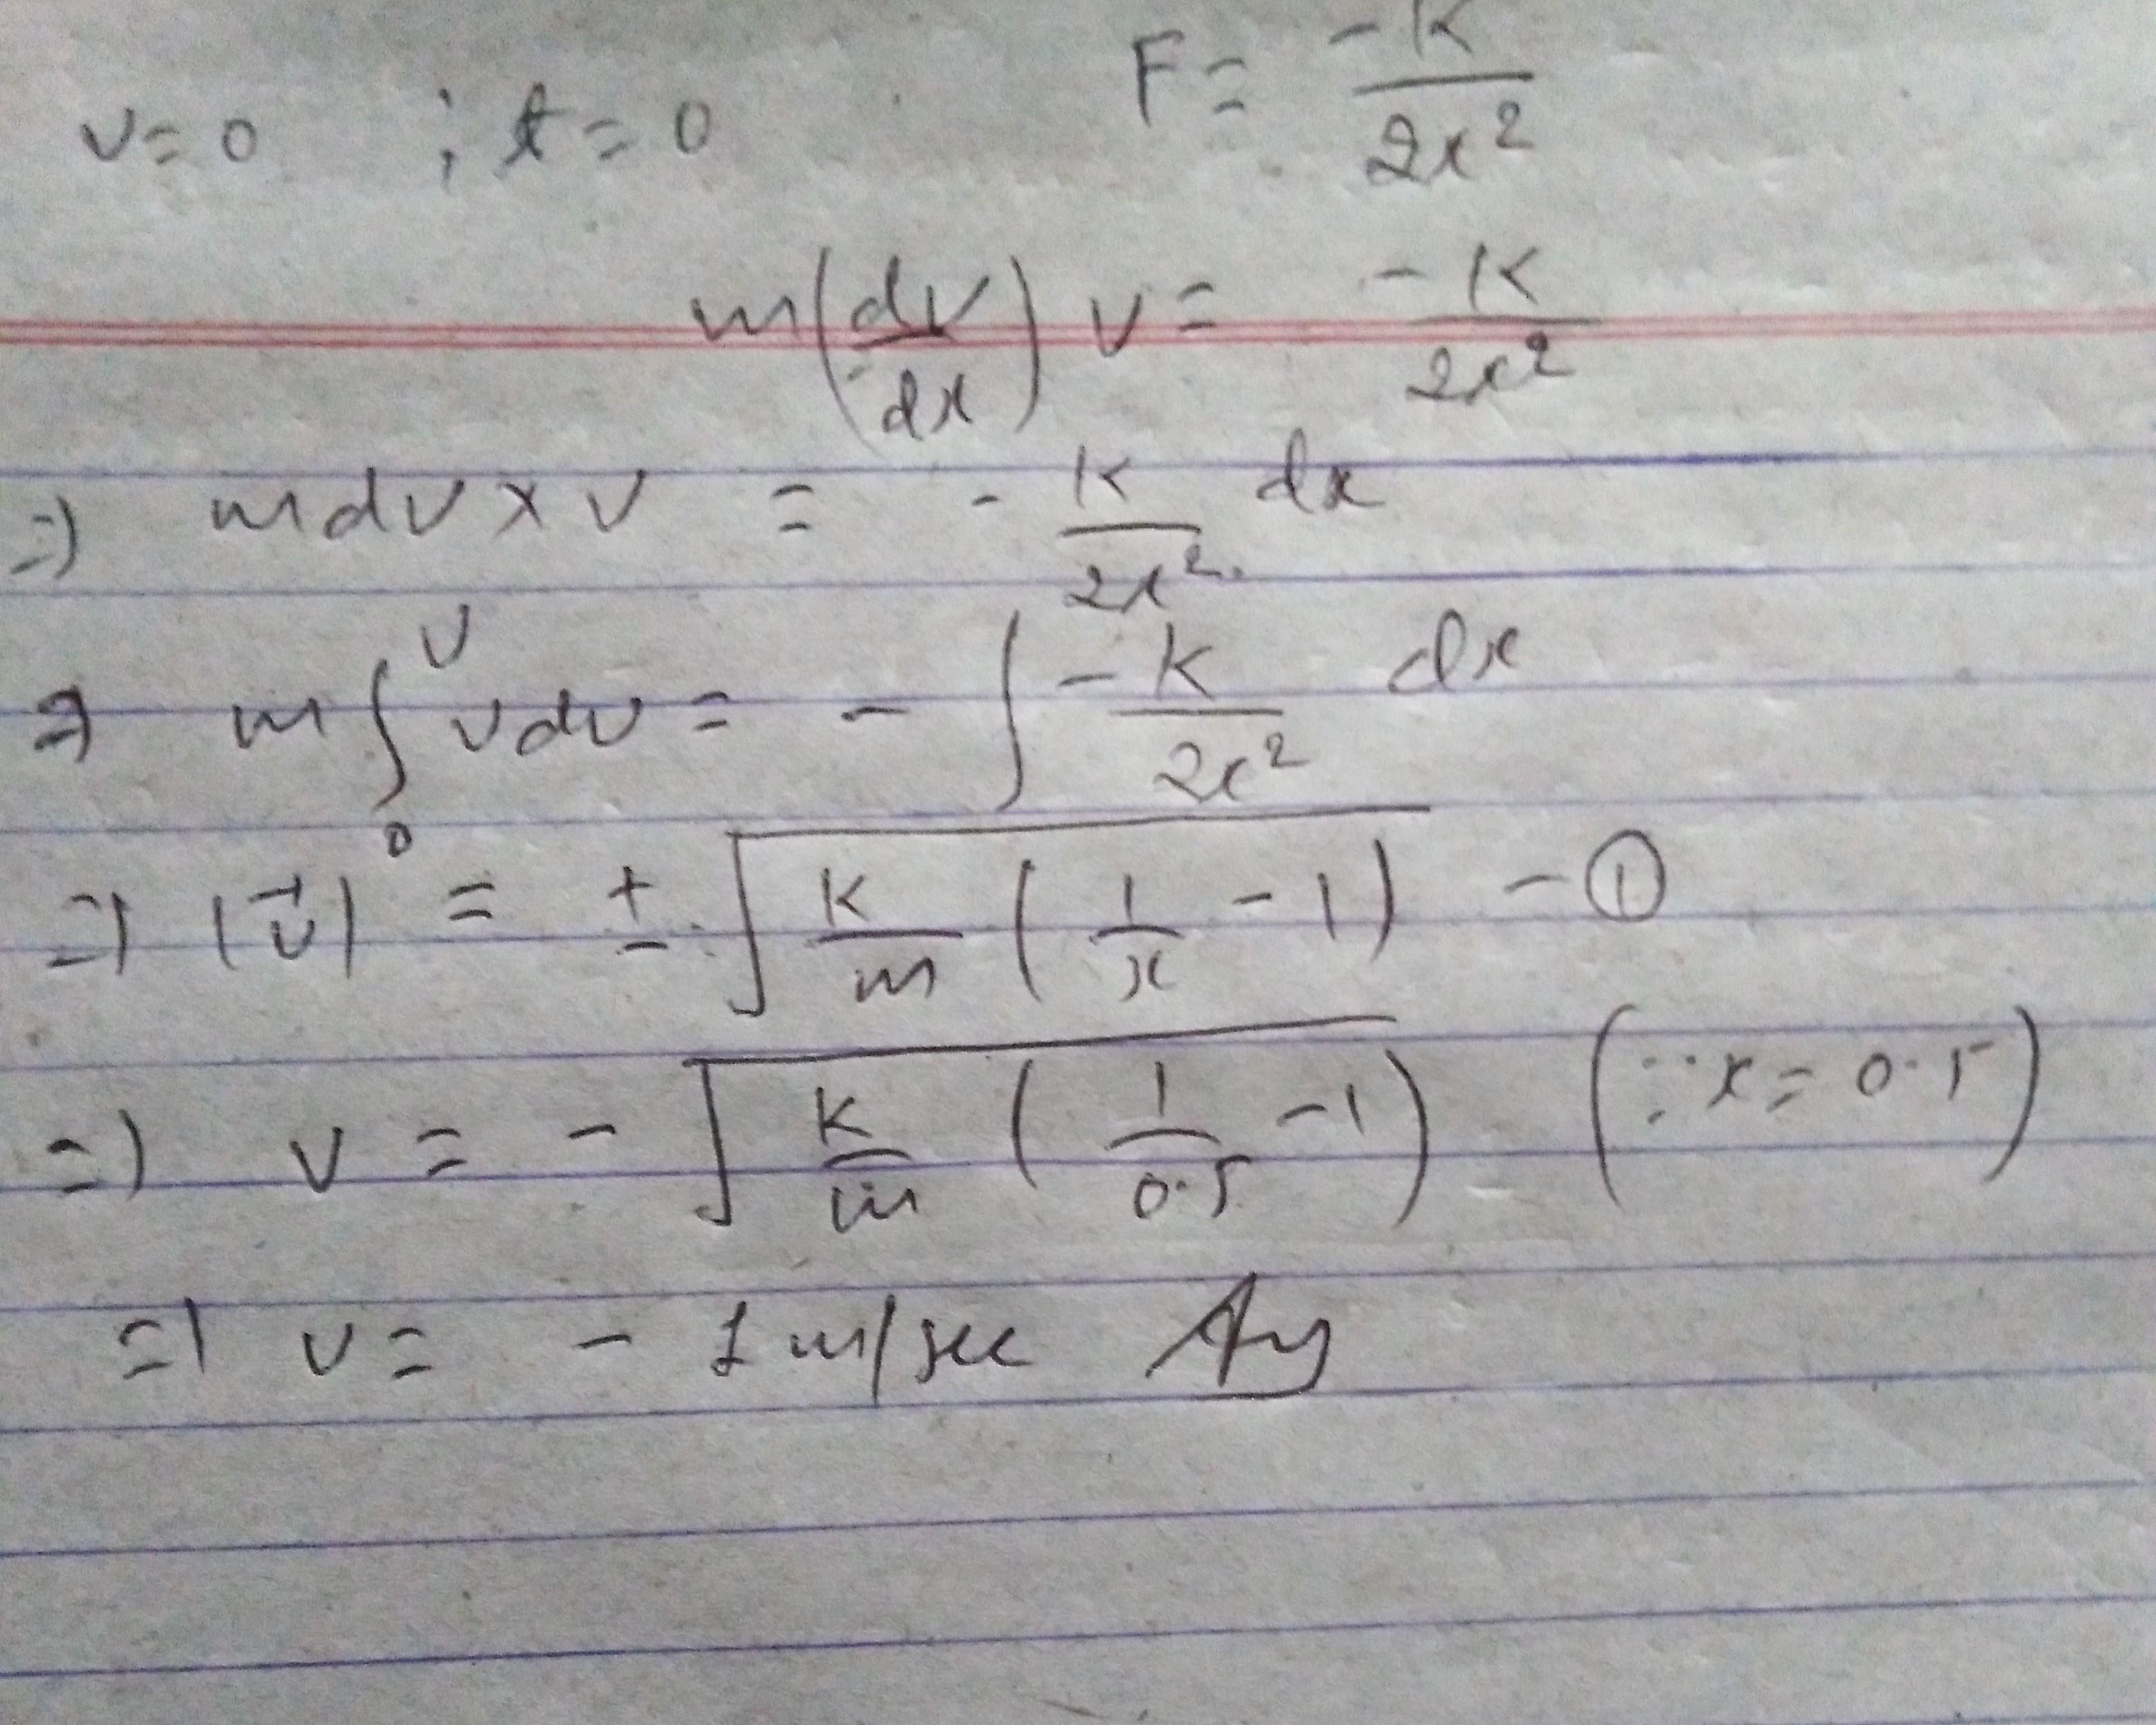 v = 0 ; t = 0 F = -K/2x²
m(dv/dx) v = -K/2x²
⇒ mdv × v = - K/2x² dx
⇒ m∫₀ᵛ vdv = - ∫ -K/2x² dx
⇒ |v⃗| = ± √(K/m (1/x - 1)) - ①
⇒ v = - √(K/m (1/0.5 - 1)) (∵ x = 0.5)
⇒ v = - 1 m/sec Ans